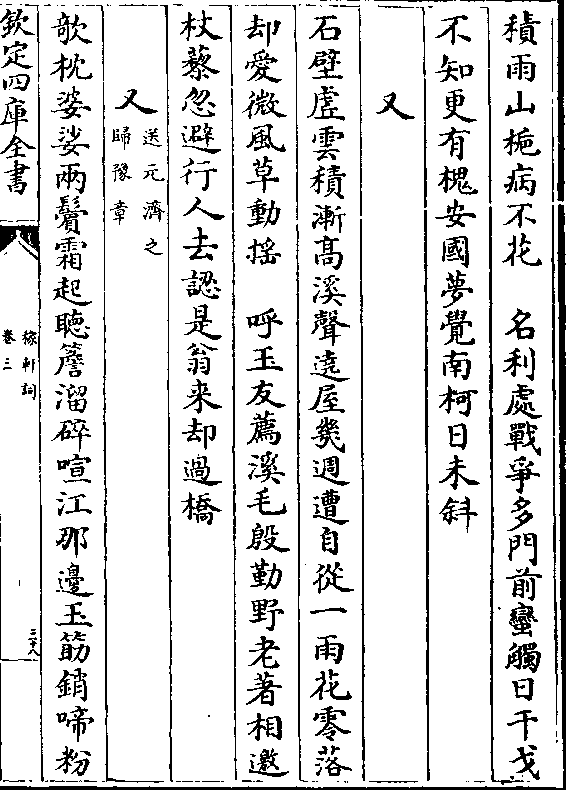 積雨山梔病不花　名利處戰爭多門前蠻觸日干戈
不知更有槐安國夢覺南柯日未斜
又
石壁虛雲積漸高溪聲遶屋幾週遭自從一雨花零落
却愛微風草動搖　呼玉友薦溪毛殷勤野老著相邀
杖藜忽避行人去認是翁来却過橋
又送元濟之
歸豫章
欹枕婆娑兩鬢霜起聴簷溜碎喧江那邊玉筯銷啼粉
欽定四庫全書
稼軒詞
卷三
三十八